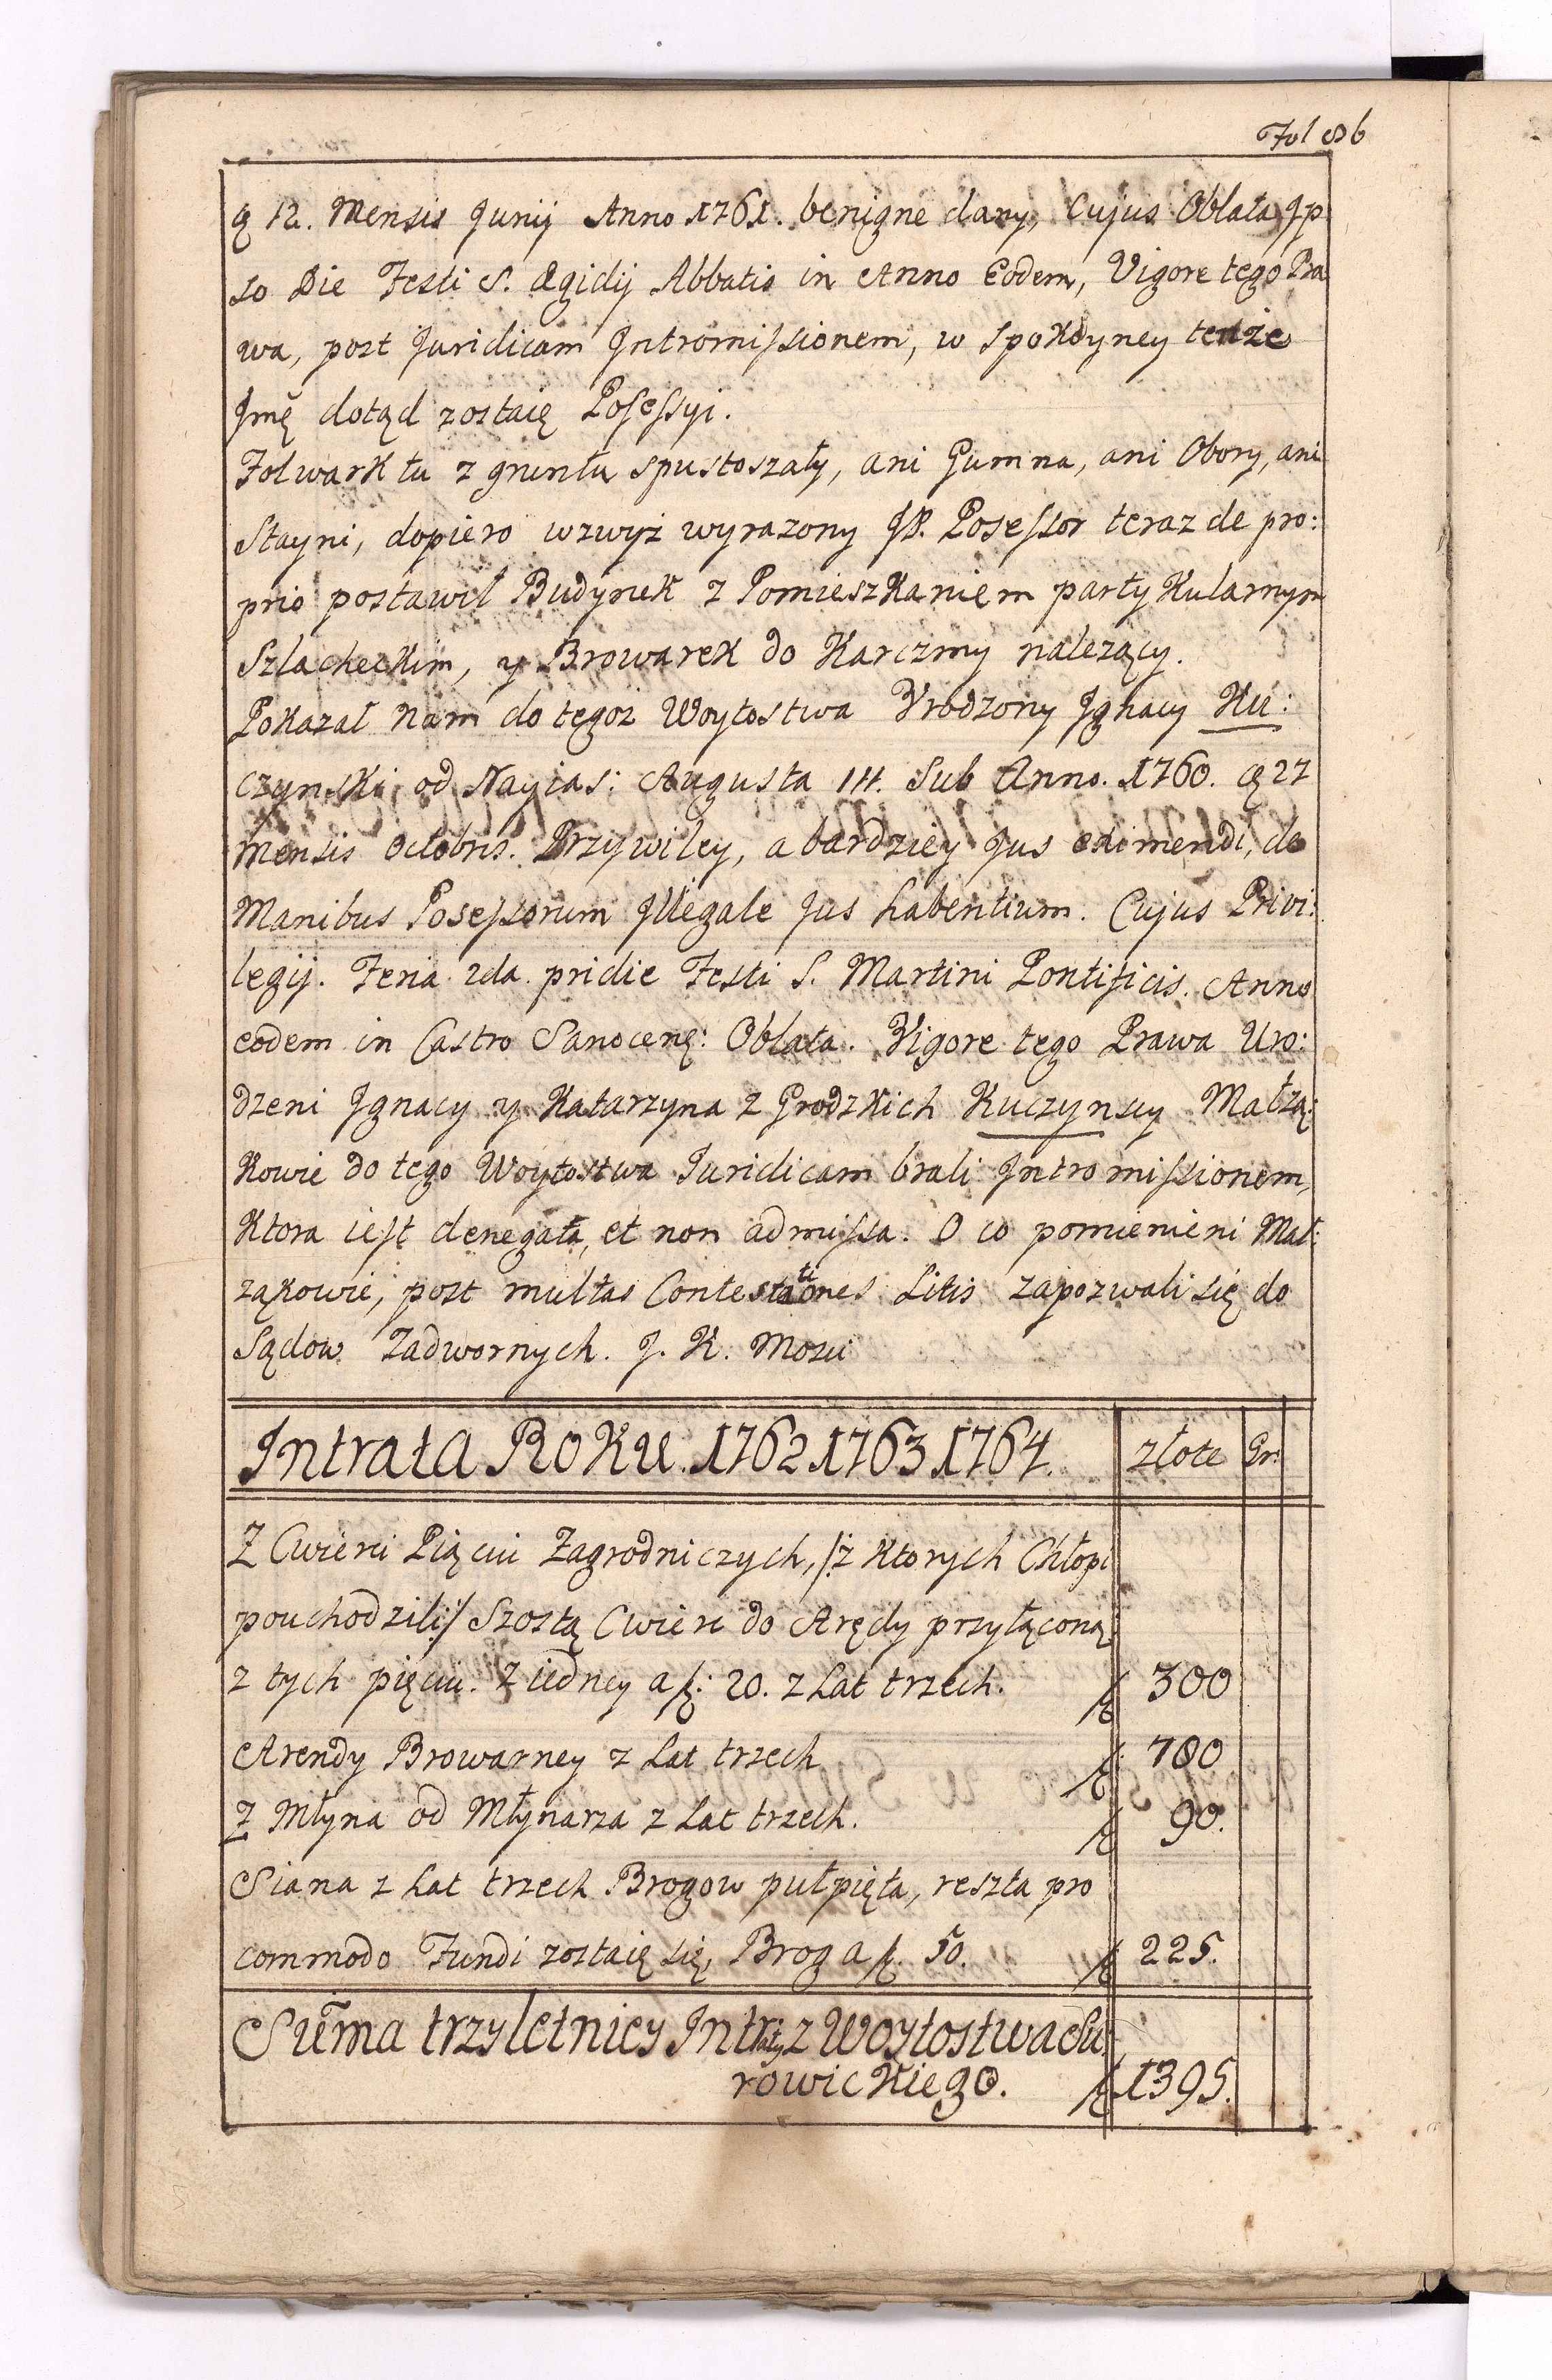 Fol 86
ę 12. Mensis Junij Anno 1761. benigne dany, Cujus Oblata Jp
so Die Festi S. Ægidij Abbatis in Anno Eodem, Vigore tego Pra
wa, post Juridicam Intromissionem, w spokoyney tenże
Jmę dotąd zostaię Possessyi.
Folwark tu z gruntu spustoszały, ani Gumna, ani Obory, ani
Stayni, dopiero wzwyż wyrazony JP. Posessor teraz de pro:
prio postawił Budynek z Pomieszkaniem partykularnym
Szlacheckim, y Browarek do Karczmy nalezący.
Pokazał nam do tegoż Woytostwa Vrodzony Jgnacy Ku:
czynski od Nayias: Augusta III. Sub Anno. 1760. ę 27
Mensis Octobris. Przywiley, a bardziey Jus eximendi, de
Manibus Posessorum Jllegale Jus habentium. Cujus Privi:
legij. Feria 2da. pridie Festi S. Martini Pontificis. Anno
eodem in Castro Sanocenę: Oblata. Vigore tego Prawa Uro:
dzeni Jgnacy y Katarzyna z Grodzkich Kuczynscy Małzą:
Kowie do tego Woytostwa Juridicam brali Intromissionem,
Ktora iest denegata, et non admissa. O co pomienieni Mał:
ząkowie, post multas Contestationes Litis zapozwali się do
Sądow Zadwornych. J. K. Mosci
Intrata Roku. 1762 1763 1764. złote Gr:
Z Cwierci Piąciu Zagrodniczych, /:z Ktorych Chłopi
pouchodzili:/ Szostą Cwierc do Arędy przyłącona
z tych pięciu. z iedney a f: 20. z Lat trzech. f 300
Arendy Browarney z Lat trzech f: 780
Z Młyna od Młynarza z Lat trzech. f 90.
Siana z Lat trzech Brogow pułpięta, reszta pro
commodo Fundi zostaię się, Brog a f. 50. f 225.
Sum̄a trzyletniey Intraty z Woytostwa Su
rowickiego. f 1395.